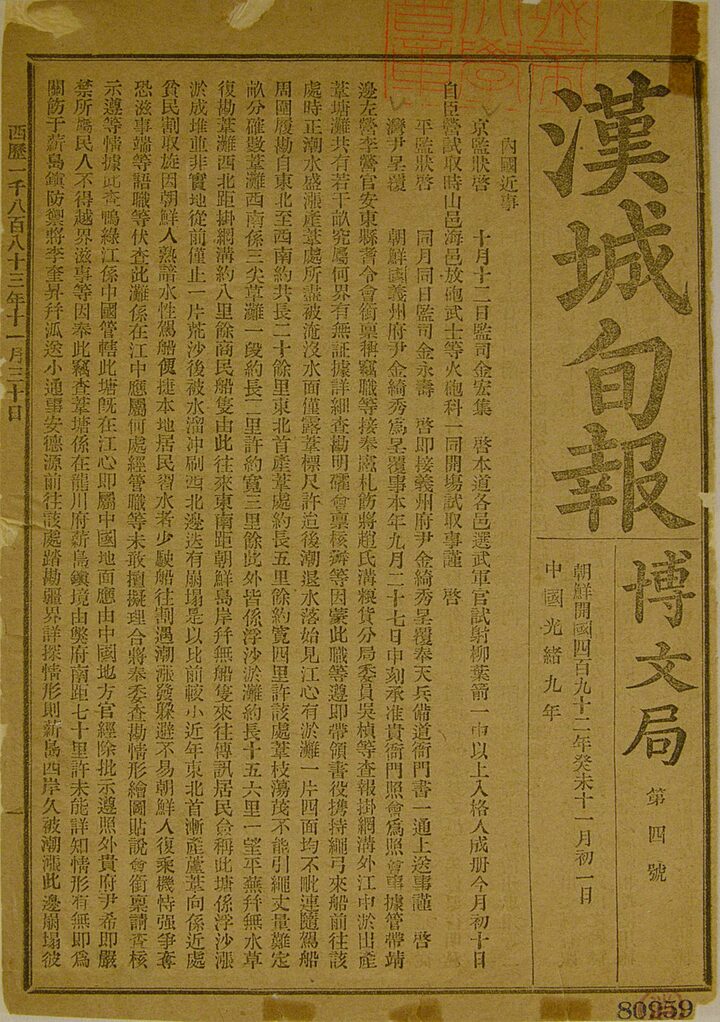 漢城旬報
博文局
第四號
朝鮮開國四百九十二年癸未十一月初一日
中國光緒九年
內國近事
京監狀啓 十月十二日監司金宏集 啓本道各邑選武軍官試射柳葉箭一中以上入格人成册今月初十日
自臣營試取時山邑海邑放砲武士等火砲科一同開塲試取事謹 啓
平監狀啓 同月同日監司金永壽 啓卽接義州府尹金綺秀呈覆奉天兵備道衙門書一通上送事謹 啓
灣尹呈覆 朝鮮國義州府尹金綺秀爲呈覆事本年九月二十七日申刻承准貴衙門照會爲照會事據管帶靖
邊左營李營官安東縣耆令會銜稟稱竊職等接奉憲札飭將趙氏溝粮貨分局委員吳楨等查報掛網溝外江中淤出產
葦塘灘共有若干畝究屬何界有無証據詳細查勘明確會稟核辦等因蒙此職等遵卽帶領書役携持繩弓來船前往該
處時正潮水盛漲產葦處所盡被淹沒水面僅露葦標尺許迨後潮退水落始見江心有淤灘一片四面均不毗連隨駕船
周圍履勘自東北至西南約共長二十餘里東北首產葦處約長五里餘約寬四里許該處葦枝蕩茂不能引繩丈量難定
畝分確數葦灘西南係三尖草灘一段約長二里許約寬三里餘此外皆係浮沙淤灘約長十五六里一望平蕪幷無水草
復勘葦灘西北距掛網溝約八里餘商民船隻由此往來東南距朝鮮島岸幷無船隻來往傳訊居民僉稱此塘係浮沙漲
淤成堆並非實地從前僅止一片荒沙後被水溜冲刷西北邊迭有崩塌是以比前較小近年東北首漸產蘆葦向係近處
貧民割取旋因朝鮮人熟諳水性駕船便捷本地居民習水若少駛船往割遇潮漲發躱避不易朝鮮人復乘機恃强爭奪
恐滋事端等語職等伏查此灘係在江中應屬何處經管職等未敢擅擬理合將奉委查勘情形繪圖貼說會銜稟請查核
示遵等情據此查鴨綠江係中國管轄此塘旣在江心卽屬中國地面應由中國地方官經除批示遵照外貴府尹希卽嚴
禁所屬民人不得越界滋事等因奉此竊查葦塘係在龍川府薪島鎭境由獘府南距七十里許未能詳知情形有無卽爲
關飭于薪島鎭防禦將李奎昇幷派送小通事安德源前往該處踏勘疆界詳探情形則薪島西岸久被潮漲此邊崩塌彼
西歷一千八百八十三年十一月三十日
一
80959